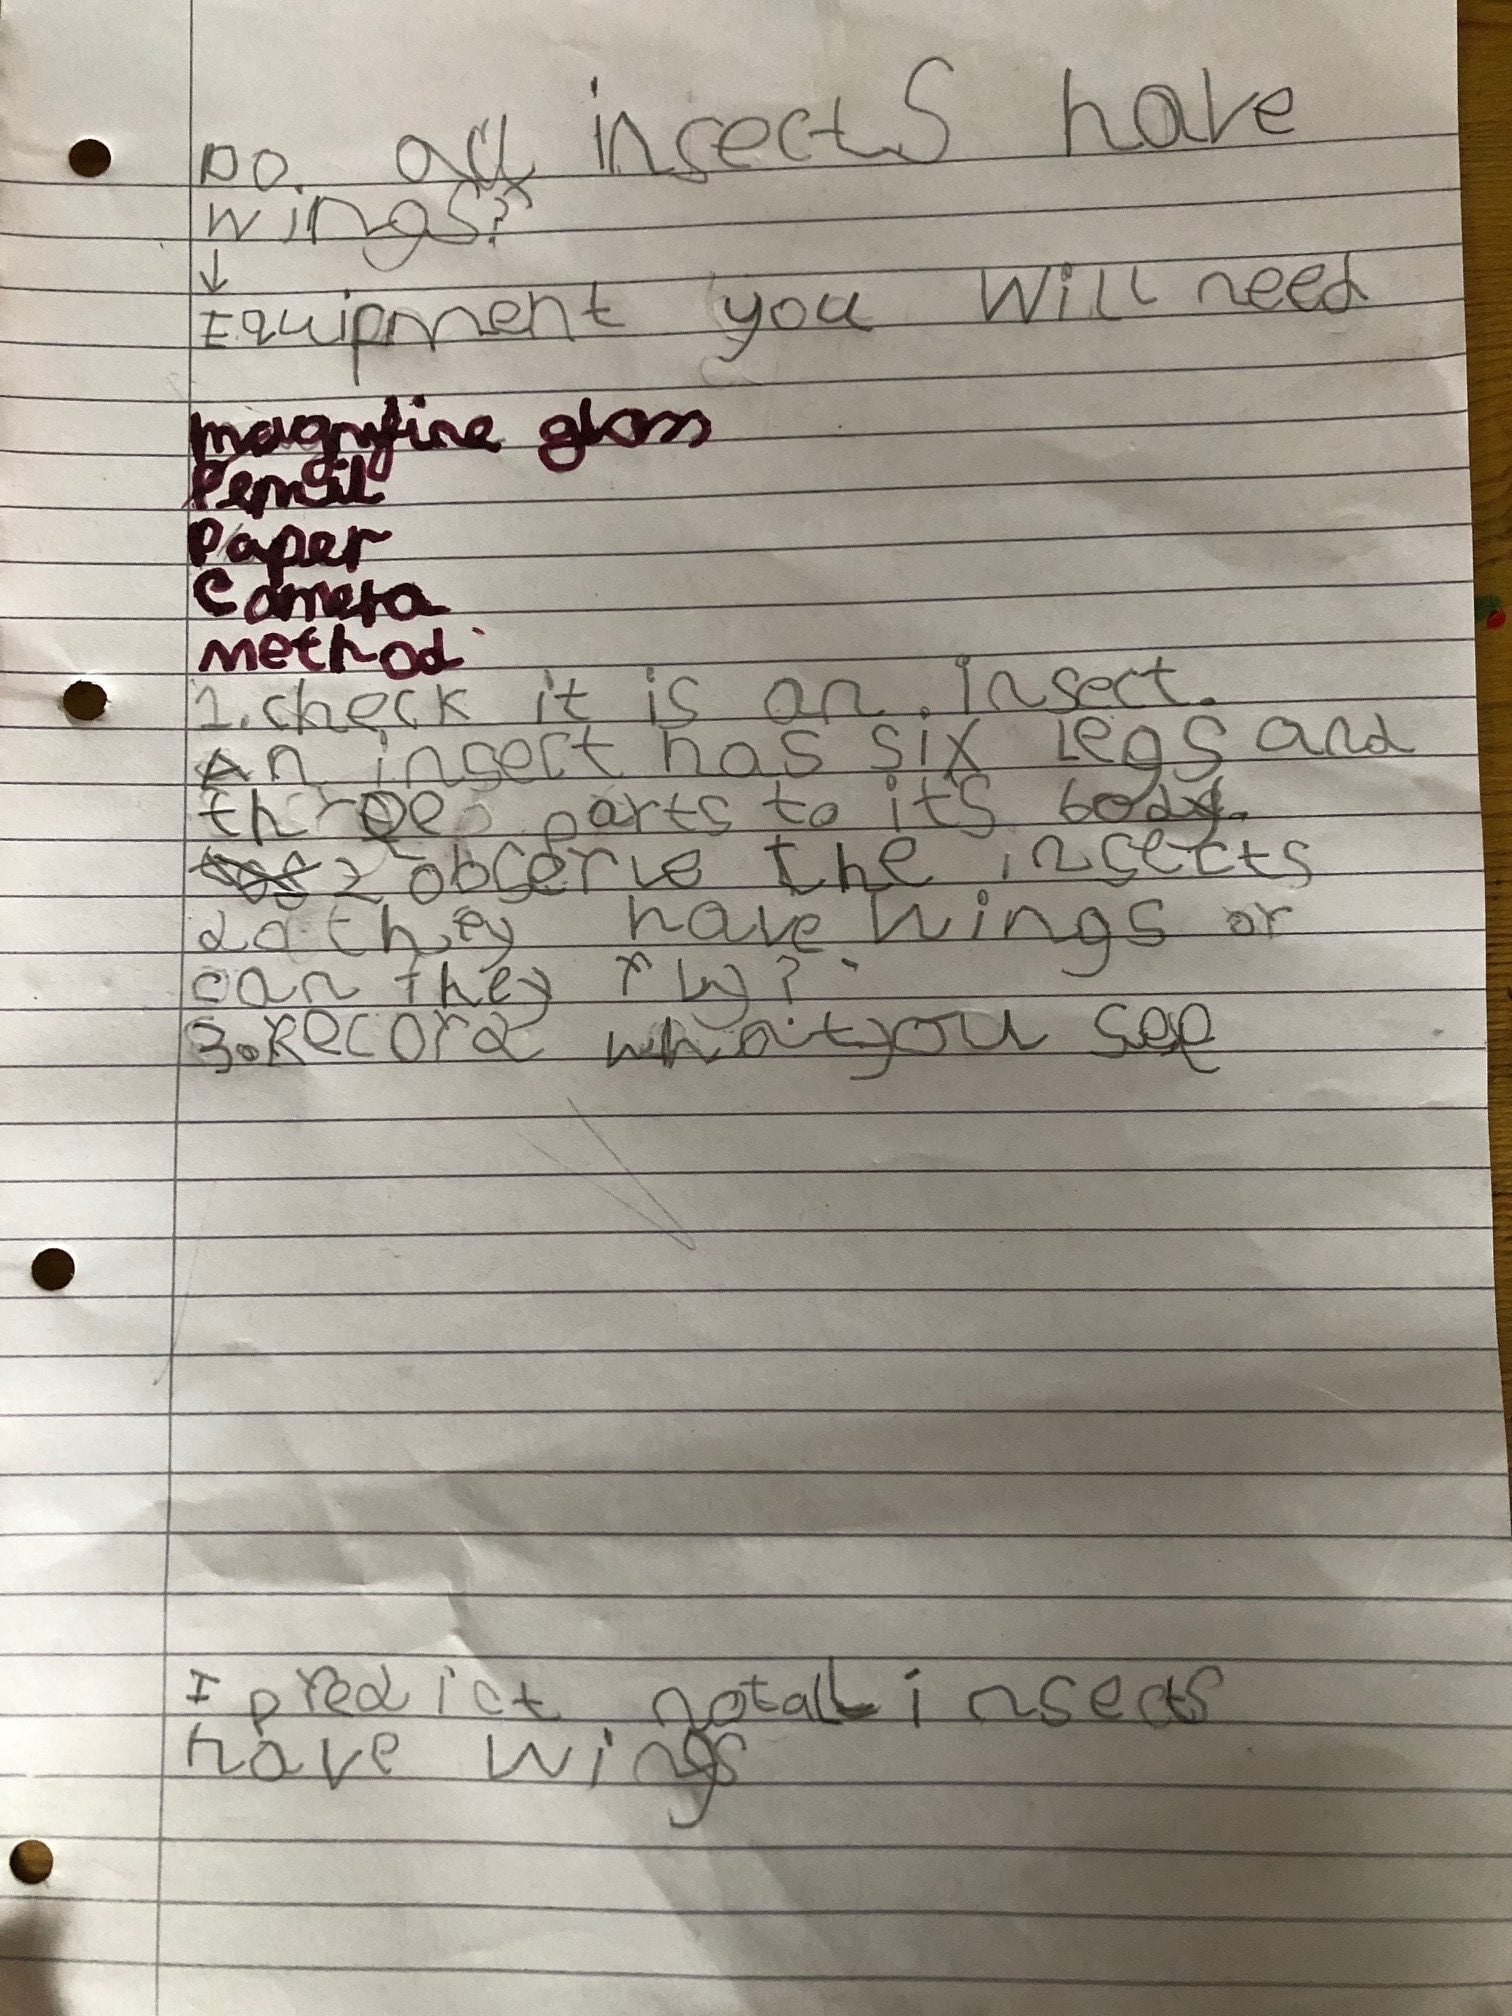 Do. all insects have
wings?
↓
Equipment you will need
magnyfine glass
Pencil
Paper
Camera
method
1. check it is an insect.
An insect has six legs and
three parts to it's body.
2 observe the insects
do they have wings or
can they fly?
3. Record what you see
I predict not all insects
have wings